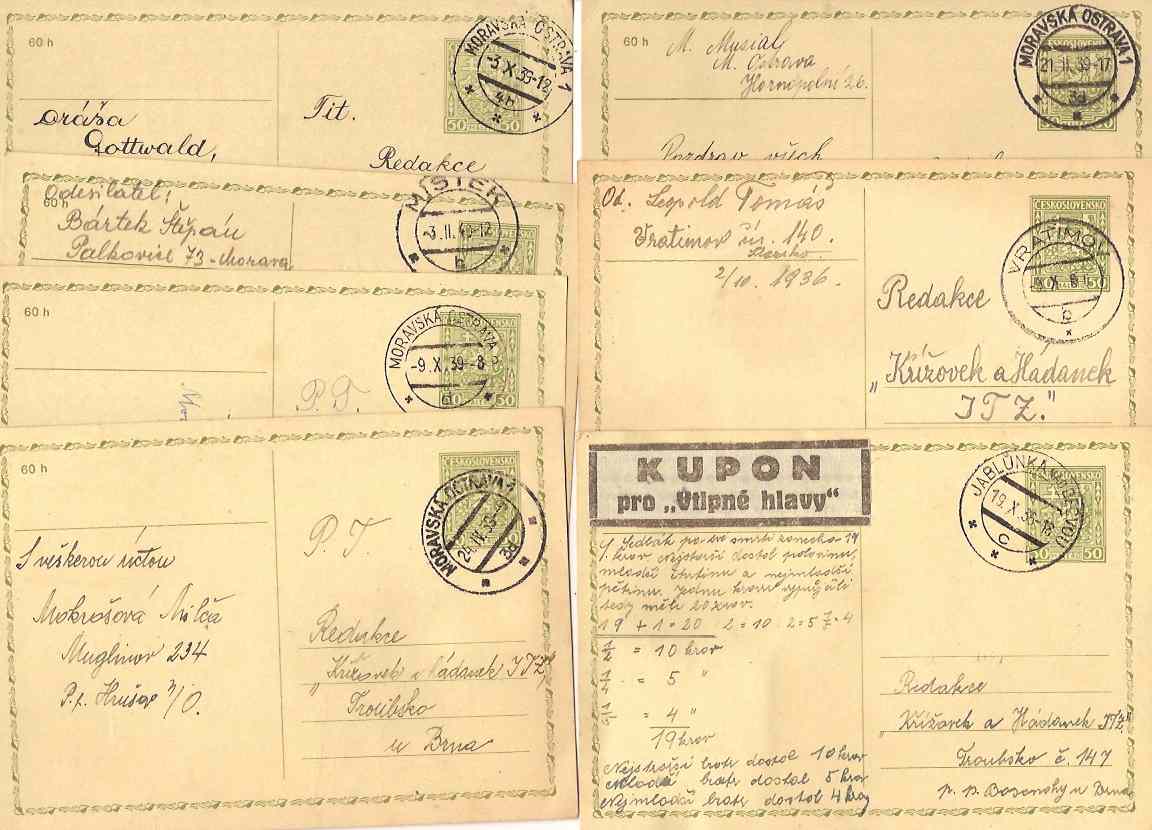 60 h
MORAVSKÁ OSTRAVA 1
-3.X.39-12
4h
50 50
Dráža
Gottwald,
Tit.
Redakce
Odesilatel:
60 h
Bártek Štěpán
Palkovice 73-Morava
MÍSTEK
-3.II.
b
60 h
MORAVSKÁ OSTRAVA
-9.X.39--8
ČESKOSLOVENSKO
50 50
P.T.
60 h
ČESKOSLOVENSKO
MORAVSKÁ OSTRAVA 1
24.IV.39
3d
S veškerou úctou
Mokrošová Milča
Muglinov 234
P.T.
Redakce
„Křížovek a Hádanek ITZ"
Troubsko
u Brna
60 h
M. Musial
M. Ostrava
Hornopolní 26.
ČESKOSLOVENSKO
MORAVSKÁ OSTRAVA 1
21.II.39-17
3d
50 50
Pozdrav všech
Od. Leopold Tomás
Vratimov čís. 140.
Slezsko.
2/10. 1936.
ČESKOSLOVENSKO
VRATIMOV
b
50
Redakce
„Křížovek a Hádanek
ITZ."
KUPON
pro „Vtipné hlavy"
JABLŮNKA NAD BEČVOU
19.X.36-18
c
50 50
Sedlák po své smrti zanechal 19
krav Nejstarší dostal polovinu,
mladší čtvrtinu a nejmladší
pětinu. Jednu krávu vypůjčili
tedy měli 20 krav.
19 + 1 = 20 : 2 = 10 : 2 = 5
1/2 = 10 krav
1/4 = 5 "
1/5 = 4 "
19 krav
Nejstarší bratr dostal 10 krav
Mladší bratr dostal 5 krav
Nejmladší bratr dostal 4 krav
Redakce
„Křížovek a Hádanek ITZ"
Troubsko č. 147
p. p. Bosonohy u Brna